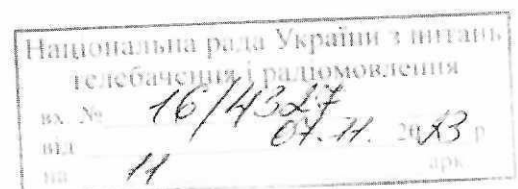 Національна рада України з питань
телебачення і радіомовлення
вх. № 16/4327
від 07.11. 2023 р
на 11 арк.